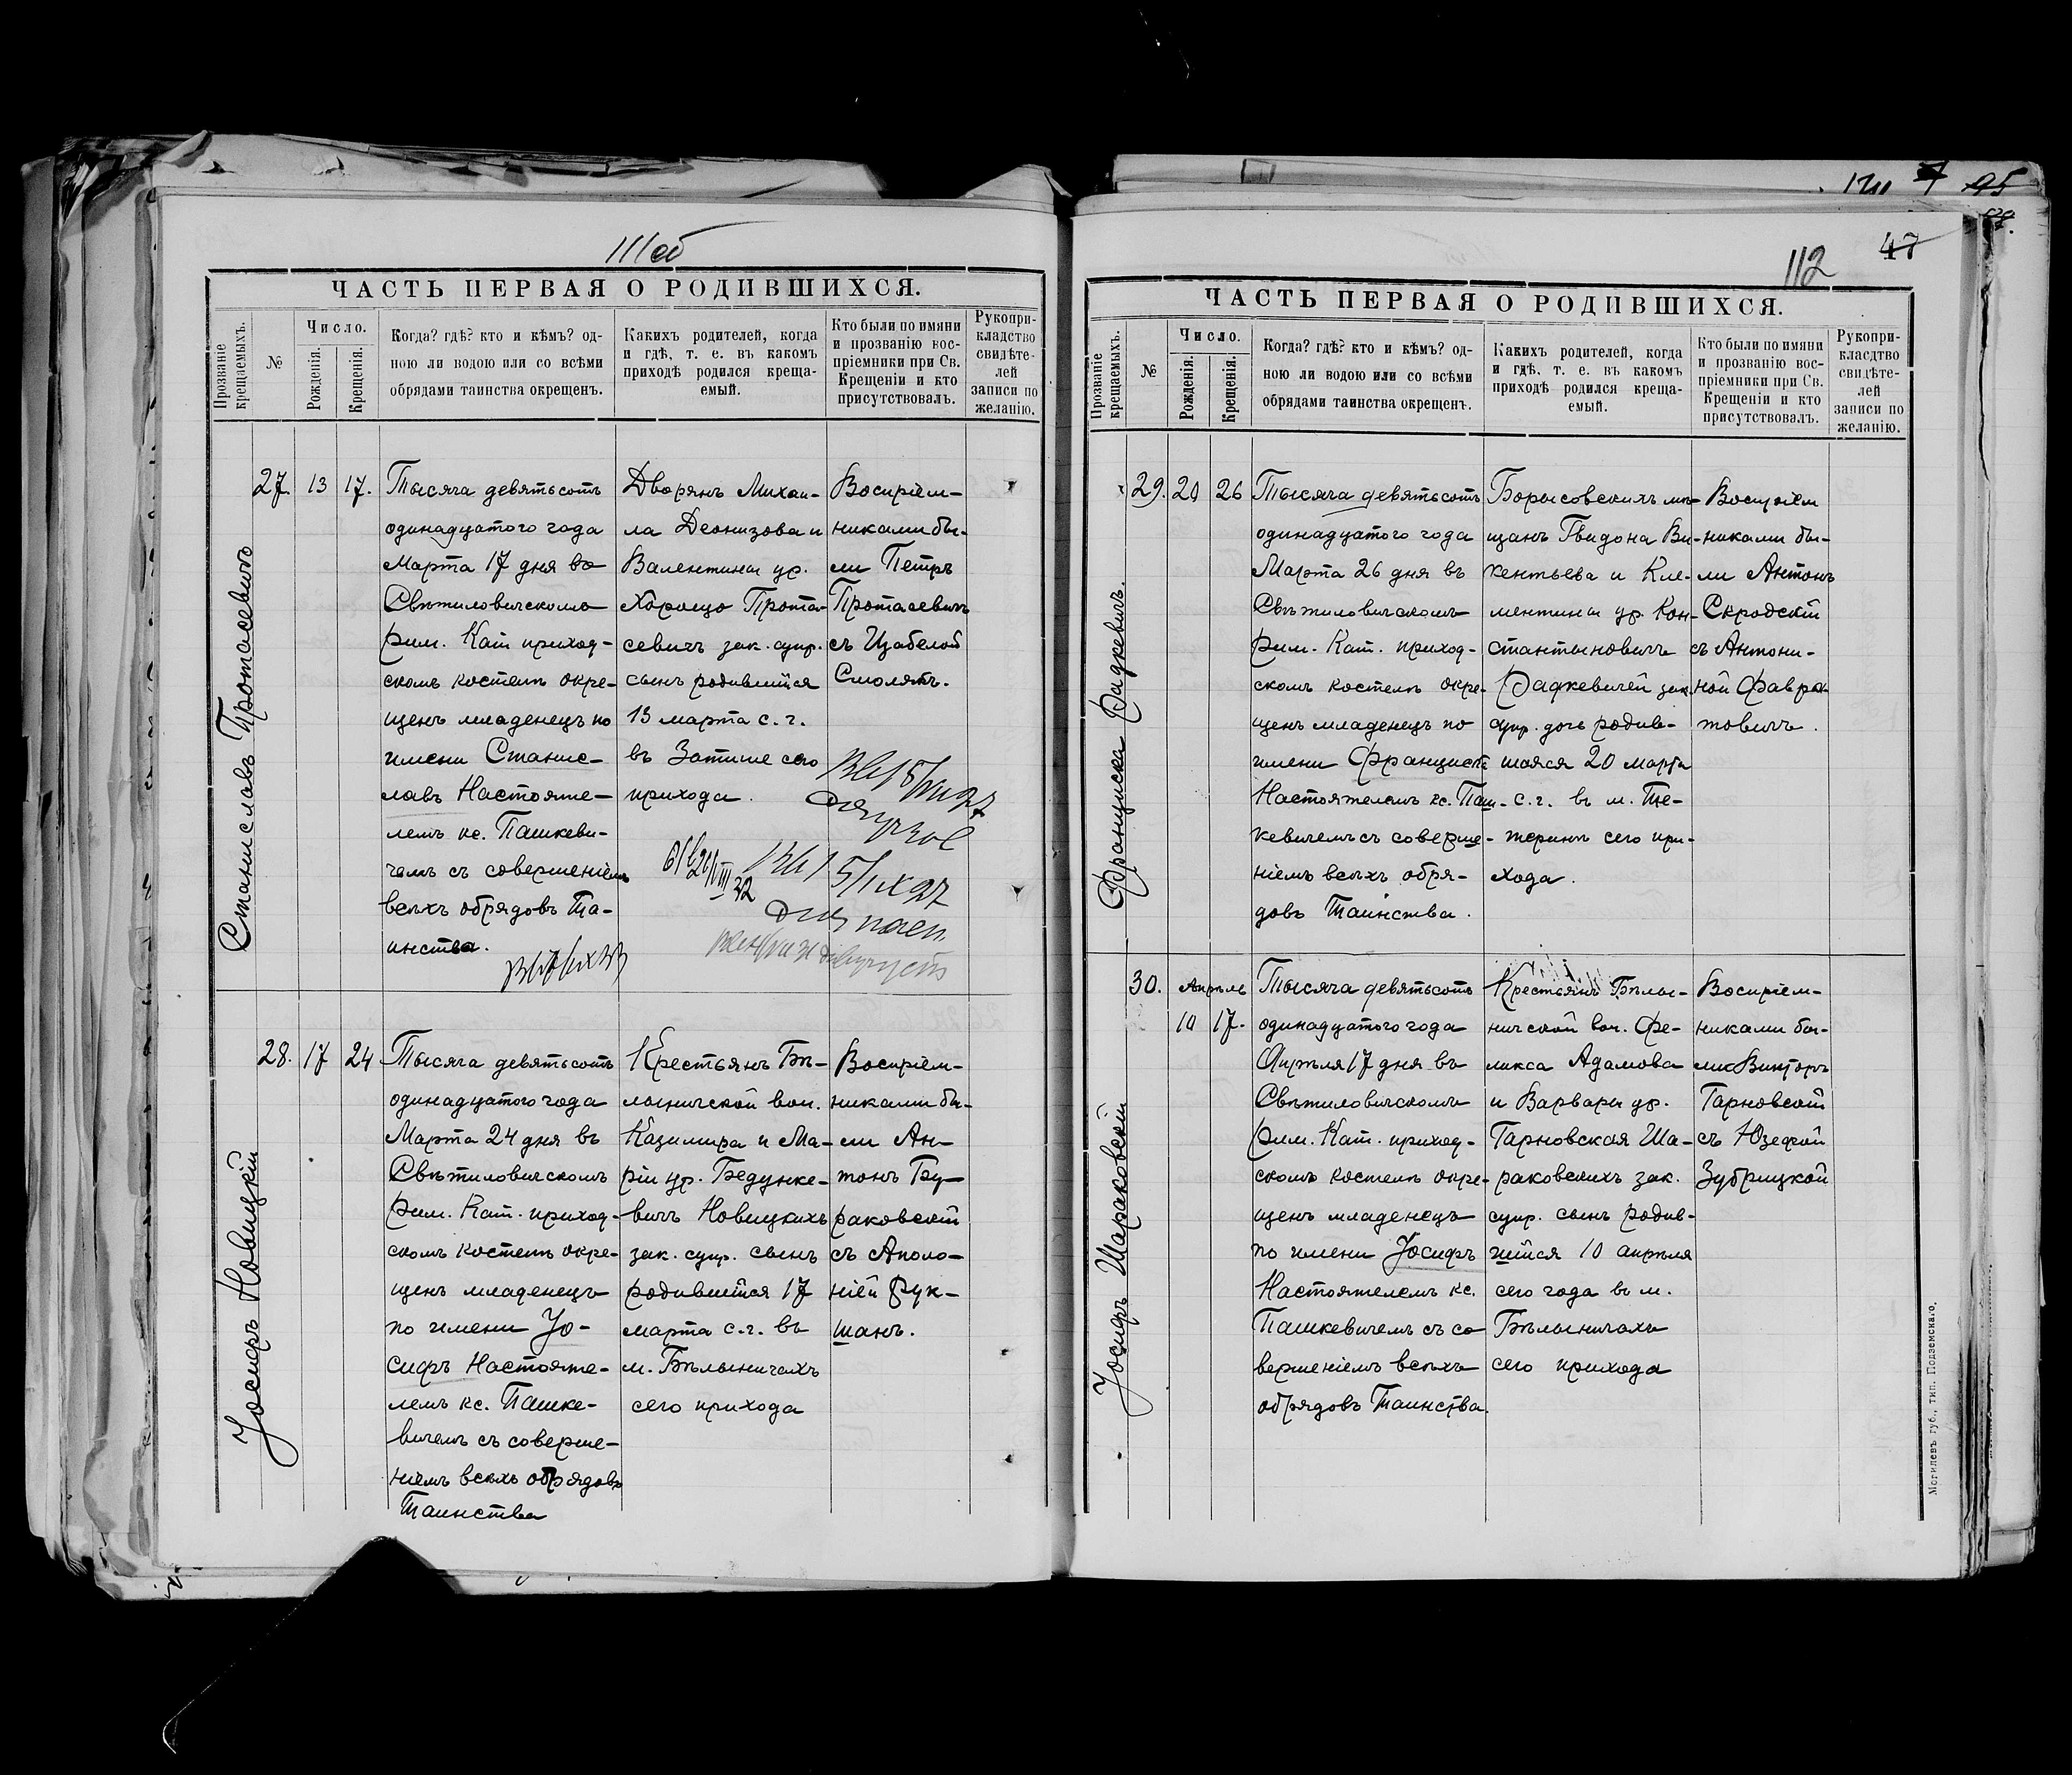 111об
ЧАСТЬ ПЕРВАЯ О РОДИВШИХСЯ.
Прозваніе крещаемыхъ.
№
Число.
Рожденія.
Крещенія.
Когда? гдѣ? кто и кѣмъ? од-
ною ли водою или со всѣми
обрядами таинства окрещенъ.
Какихъ родителей, когда
и гдѣ, т. е. въ какомъ
приходѣ родился креща-
емый.
Кто были по имяни
и прозванію вос-
пріемники при Св.
Крещеніи и кто
присутствовалъ.
Рукопри-
кладство
свидѣте-
лей
записи по
желанію.
Станиславъ Протасевичъ
27. 13 17.
Тысяча девятьсотъ
одинадцатого года
Марта 17 дня въ
Свѣтиловичскомъ
Рим. Кат приход-
скомъ костелѣ окре-
щенъ младенецъ по
имени Станис-
лавъ Настояте-
лемъ кс. Пашкеви-
чемъ съ совершеніемъ
всѣхъ обрядовъ Та-
инства.
Дворянъ Михаи-
ла Деонизова и
Валентины ур.
Хорощо Прота-
севичъ зак. супр.
сынъ родившійся
13 марта с. г.
въ Затише сего
прихода.
Воспріем-
никами бы-
ли Петръ
Протасевичъ
съ Изабелой
Смолякъ.
5/IX 27
Іосифъ Новицкій
28. 17 24
Тысяча девятьсотъ
одинадцатого года
Марта 24 дня въ
Свѣтиловичскомъ
Рим. Кат. приход-
скомъ костелѣ окре-
щенъ младенецъ
по имени Іо-
сифъ Настояте-
лемъ кс. Пашке-
вичемъ съ соверше-
ніемъ всѣхъ обрядовъ
Таинства
Крестьянъ Бѣ-
лыничской вол.
Казимира и Ма-
ріи ур. Бедунке-
вичъ Новицкихъ
зак. супр. сынъ
родившійся 17
марта с. г. въ
м. Бѣлыничахъ
сего прихода
Воспріем-
никами бы-
ли Ан-
тонъ Бу-
раковскій
съ Аполо-
ніей Рук-
шанъ.
112
47
ЧАСТЬ ПЕРВАЯ О РОДИВШИХСЯ.
Прозваніе крещаемыхъ.
№
Число.
Рожденія.
Крещенія.
Когда? гдѣ? кто и кѣмъ? од-
ною ли водою или со всѣми
обрядами таинства окрещенъ.
Какихъ родителей, когда
и гдѣ, т. е. въ какомъ
приходѣ родился креща-
емый.
Кто были по имяни
и прозванію вос-
пріемники при Св.
Крещеніи и кто
присутствовалъ.
Рукопри-
класдтво
свидѣте-
лей
записи по
желанію.
Франциска Радкевичъ.
29. 20 26
Тысяча девятьсотъ
одинадцатого года
Марта 26 дня въ
Свѣтиловичскомъ
Рим. Кат. приход-
скомъ костелѣ окре-
щенъ младенецъ по
имени Франциска
Настоятелемъ кс. Паш-
кевичемъ съ соверше-
ніемъ всѣхъ обря-
довъ Таинства.
Борысовскихъ мѣ-
щанъ Гвидона Ви-
кентьева и Кле-
ментины ур. Кон-
стантыновичъ
Радкевичей зак.
супр. дочь родив-
шаяся 20 марта
с. г. въ м. Те-
теринѣ сего при-
хода.
Воспріем
никами бы-
ли Антонъ
Скродскій
съ Антони-
ной Фавра-
товичъ.
Іосифъ Шараковскій
30. Апрѣль
10 17.
Тысяча девятьсотъ
одинадцатого года
Апрѣля 17 дня въ
Свѣтиловичскомъ
Рим. Кат. приход-
скомъ костелѣ окре-
щенъ младенецъ
по имени Іосифъ
Настоятелемъ кс.
Пашкевичемъ съ со
вершеніемъ всѣхъ
обрядовъ Таинства.
Крестьянъ Бѣлы-
ничской вол. Фе-
ликса Адамова
и Варвары ур.
Тарновская Ша-
раковскихъ зак.
супр. сынъ родив-
шійся 10 апрѣля
сего года въ м.
Бѣлыничахъ
сего прихода
Воспріем-
никами бы-
ли Викторъ
Тарновскій
съ Юзефой
Зубрицкой
Могилевъ губ., тип. Подземска.о.